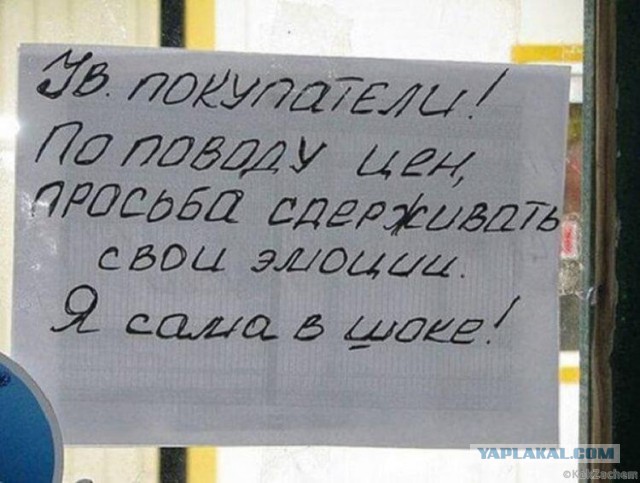 Ув. покупатели!
По поводу цен,
просьба сдерживать
свои эмоции.
Я сама в шоке!
YAPLAKAL.COM